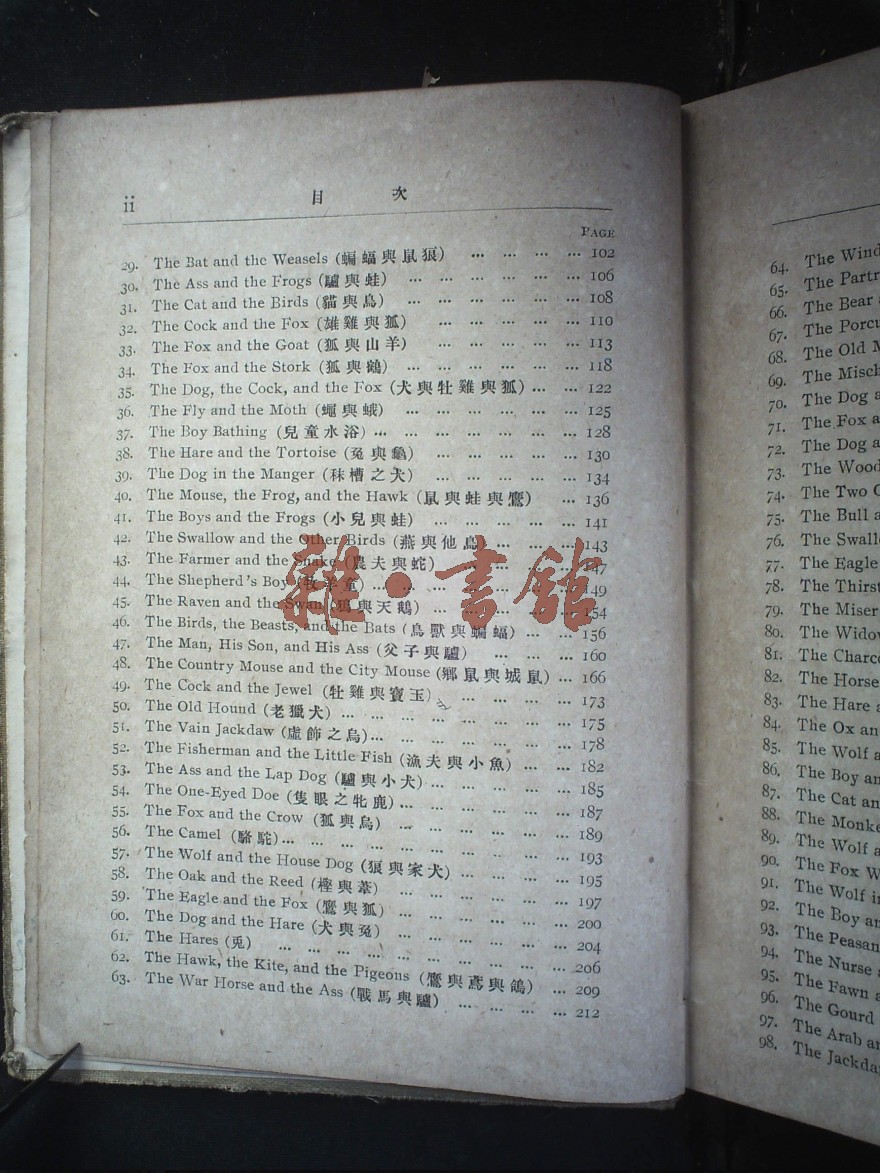 ii 目 次
PAGE
29. The Bat and the Weasels (蝙蝠與鼠狼) ... ... ... ... 102
30. The Ass and the Frogs (驢與蛙) ... ... ... ... ... 106
31. The Cat and the Birds (貓與鳥) ... ... ... ... ... 108
32. The Cock and the Fox (雄雞與狐) ... ... ... ... 110
33. The Fox and the Goat (狐與山羊) ... ... ... ... 113
34. The Fox and the Stork (狐與鶴) ... ... ... ... ... 118
35. The Dog, the Cock, and the Fox (犬與牡雞與狐) ... ... 122
36. The Fly and the Moth (蠅與蛾) ... ... ... ... ... 125
37. The Boy Bathing (兒童水浴) ... ... ... ... ... ... 128
38. The Hare and the Tortoise (兔與龜) ... ... ... ... ... 130
39. The Dog in the Manger (秣槽之犬) ... ... ... ... ... 134
40. The Mouse, the Frog, and the Hawk (鼠與蛙與鷹) ... 136
41. The Boys and the Frogs (小兒與蛙) ... ... ... ... ... 141
42. The Swallow and the Other Birds (燕與他鳥) ... ... ... 143
43. The Farmer and the Snake (農夫與蛇) ... ... ... ...
44. The Shepherd's Boy (牧羊童) ... ... ... ... ... 149
45. The Raven and the Swan (鴉與天鵝) ... ... ... ... 154
46. The Birds, the Beasts, and the Bats (鳥獸與蝙蝠) ... ... 156
47. The Man, His Son, and His Ass (父子與驢) ... ... ... 160
48. The Country Mouse and the City Mouse (鄉鼠與城鼠) ... 166
49. The Cock and the Jewel (牡雞與寶玉) ... ... ... ... 173
50. The Old Hound (老獵犬) ... ... ... ... ... ... 175
51. The Vain Jackdaw (虛飾之烏)... ... ... ... ... ... 178
52. The Fisherman and the Little Fish (漁夫與小魚) ... ... 182
53. The Ass and the Lap Dog (驢與小犬) ... ... ... ... 185
54. The One-Eyed Doe (隻眼之牝鹿)... ... ... ... ... 187
55. The Fox and the Crow (狐與烏) ... ... ... ... ... 189
56. The Camel (駱駝)... ... ... ... ... ... ... 193
57. The Wolf and the House Dog (狼與家犬) ... ... ... 195
58. The Oak and the Reed (樫與葦) ... ... ... ... ... 197
59. The Eagle and the Fox (鷹與狐) ... ... ... ... ... 200
60. The Dog and the Hare (犬與兔) ... ... ... ... ... 204
61. The Hares (兎) ... ... ... ... ... ... ... 206
62. The Hawk, the Kite, and the Pigeons (鷹與鳶與鴿) ... 209
63. The War Horse and the Ass (戰馬與驢) ... ... ... ... 212
雜·書館
64. The Wind
65. The Partr
66. The Bear
67. The Porcu
68. The Old M
69. The Misch
70. The Dog a
71. The Fox a
72. The Dog a
73. The Wood
74. The Two
75. The Bull a
76. The Swallo
77. The Eagle
78. The Thirst
79. The Miser
80. The Widow
81. The Charco
82. The Horse
83. The Hare a
84. The Ox an
85. The Wolf a
86. The Boy an
87. The Cat an
88. The Monke
89. The Wolf a
90. The Fox W
91. The Wolf i
92. The Boy an
93. The Peasan
94. The Nurse
95. The Fawn a
96. The Gourd
97. The Arab an
98. The Jackda